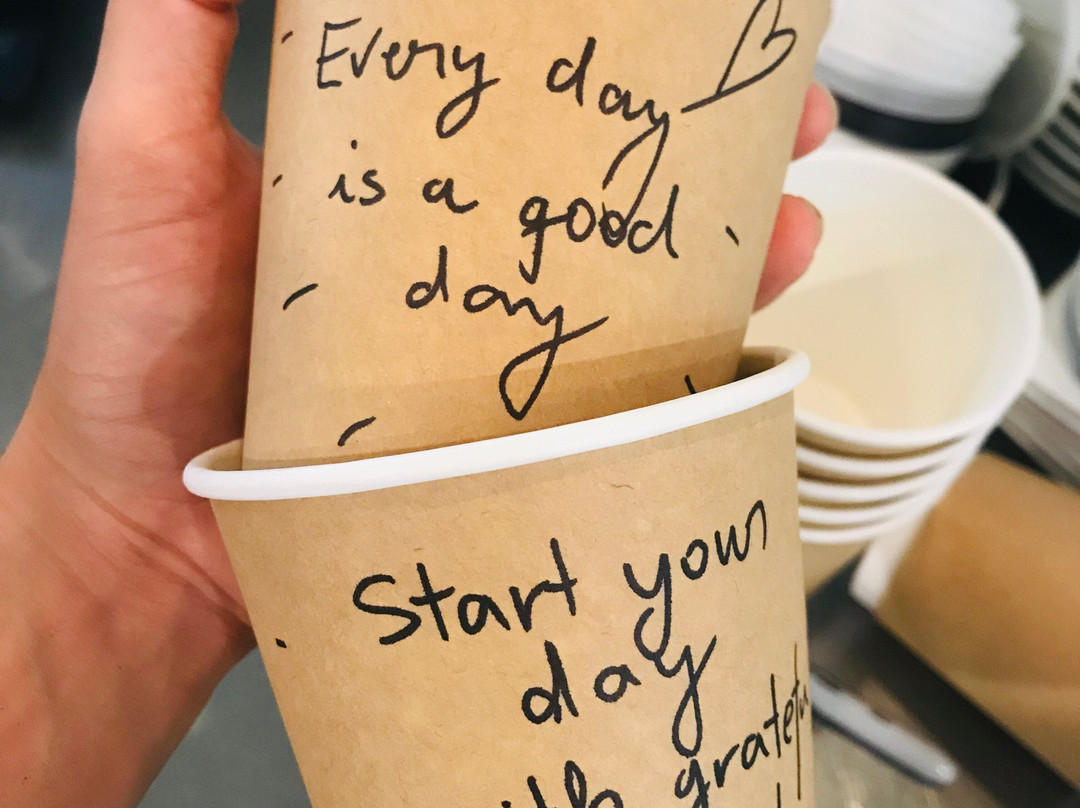 Every day
is a good
day
Start your
day
with grateful